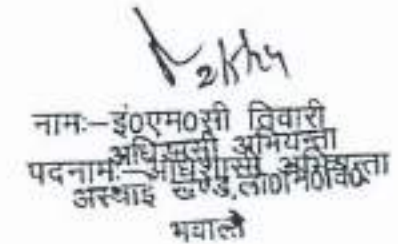 नामः–इं०एम०सी तिवारी
अधिशासी अभियन्ता
पदनामः–अधिशासी अभियन्ता
अस्थाई खण्ड,लो०नि०वि०
भवाली